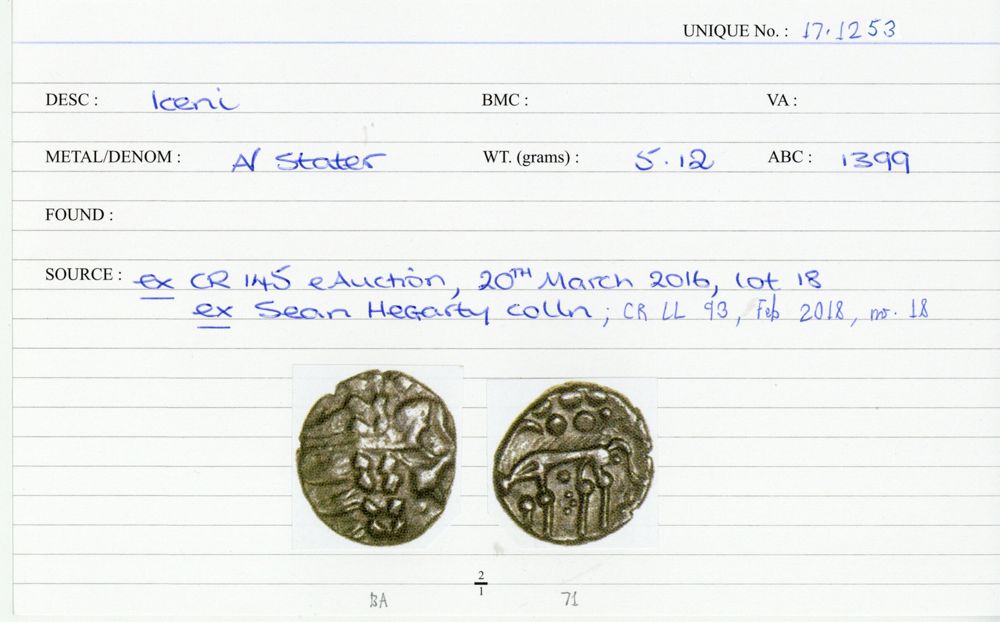 UNIQUE No. : 17.1253
DESC : Iceni BMC : VA :
METAL/DENOM : N Stater WT. (grams) : 5.12 ABC : 1399
FOUND :
SOURCE : ex CR 145 eAuction, 20TH March 2016, lot 18
ex Sean Hegarty colln ; CR LL 93, Feb 2018, no. 18
2
1
BA 71